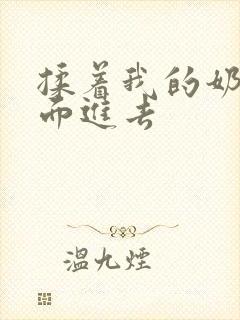 揉着我的奶
而进去
温九煙